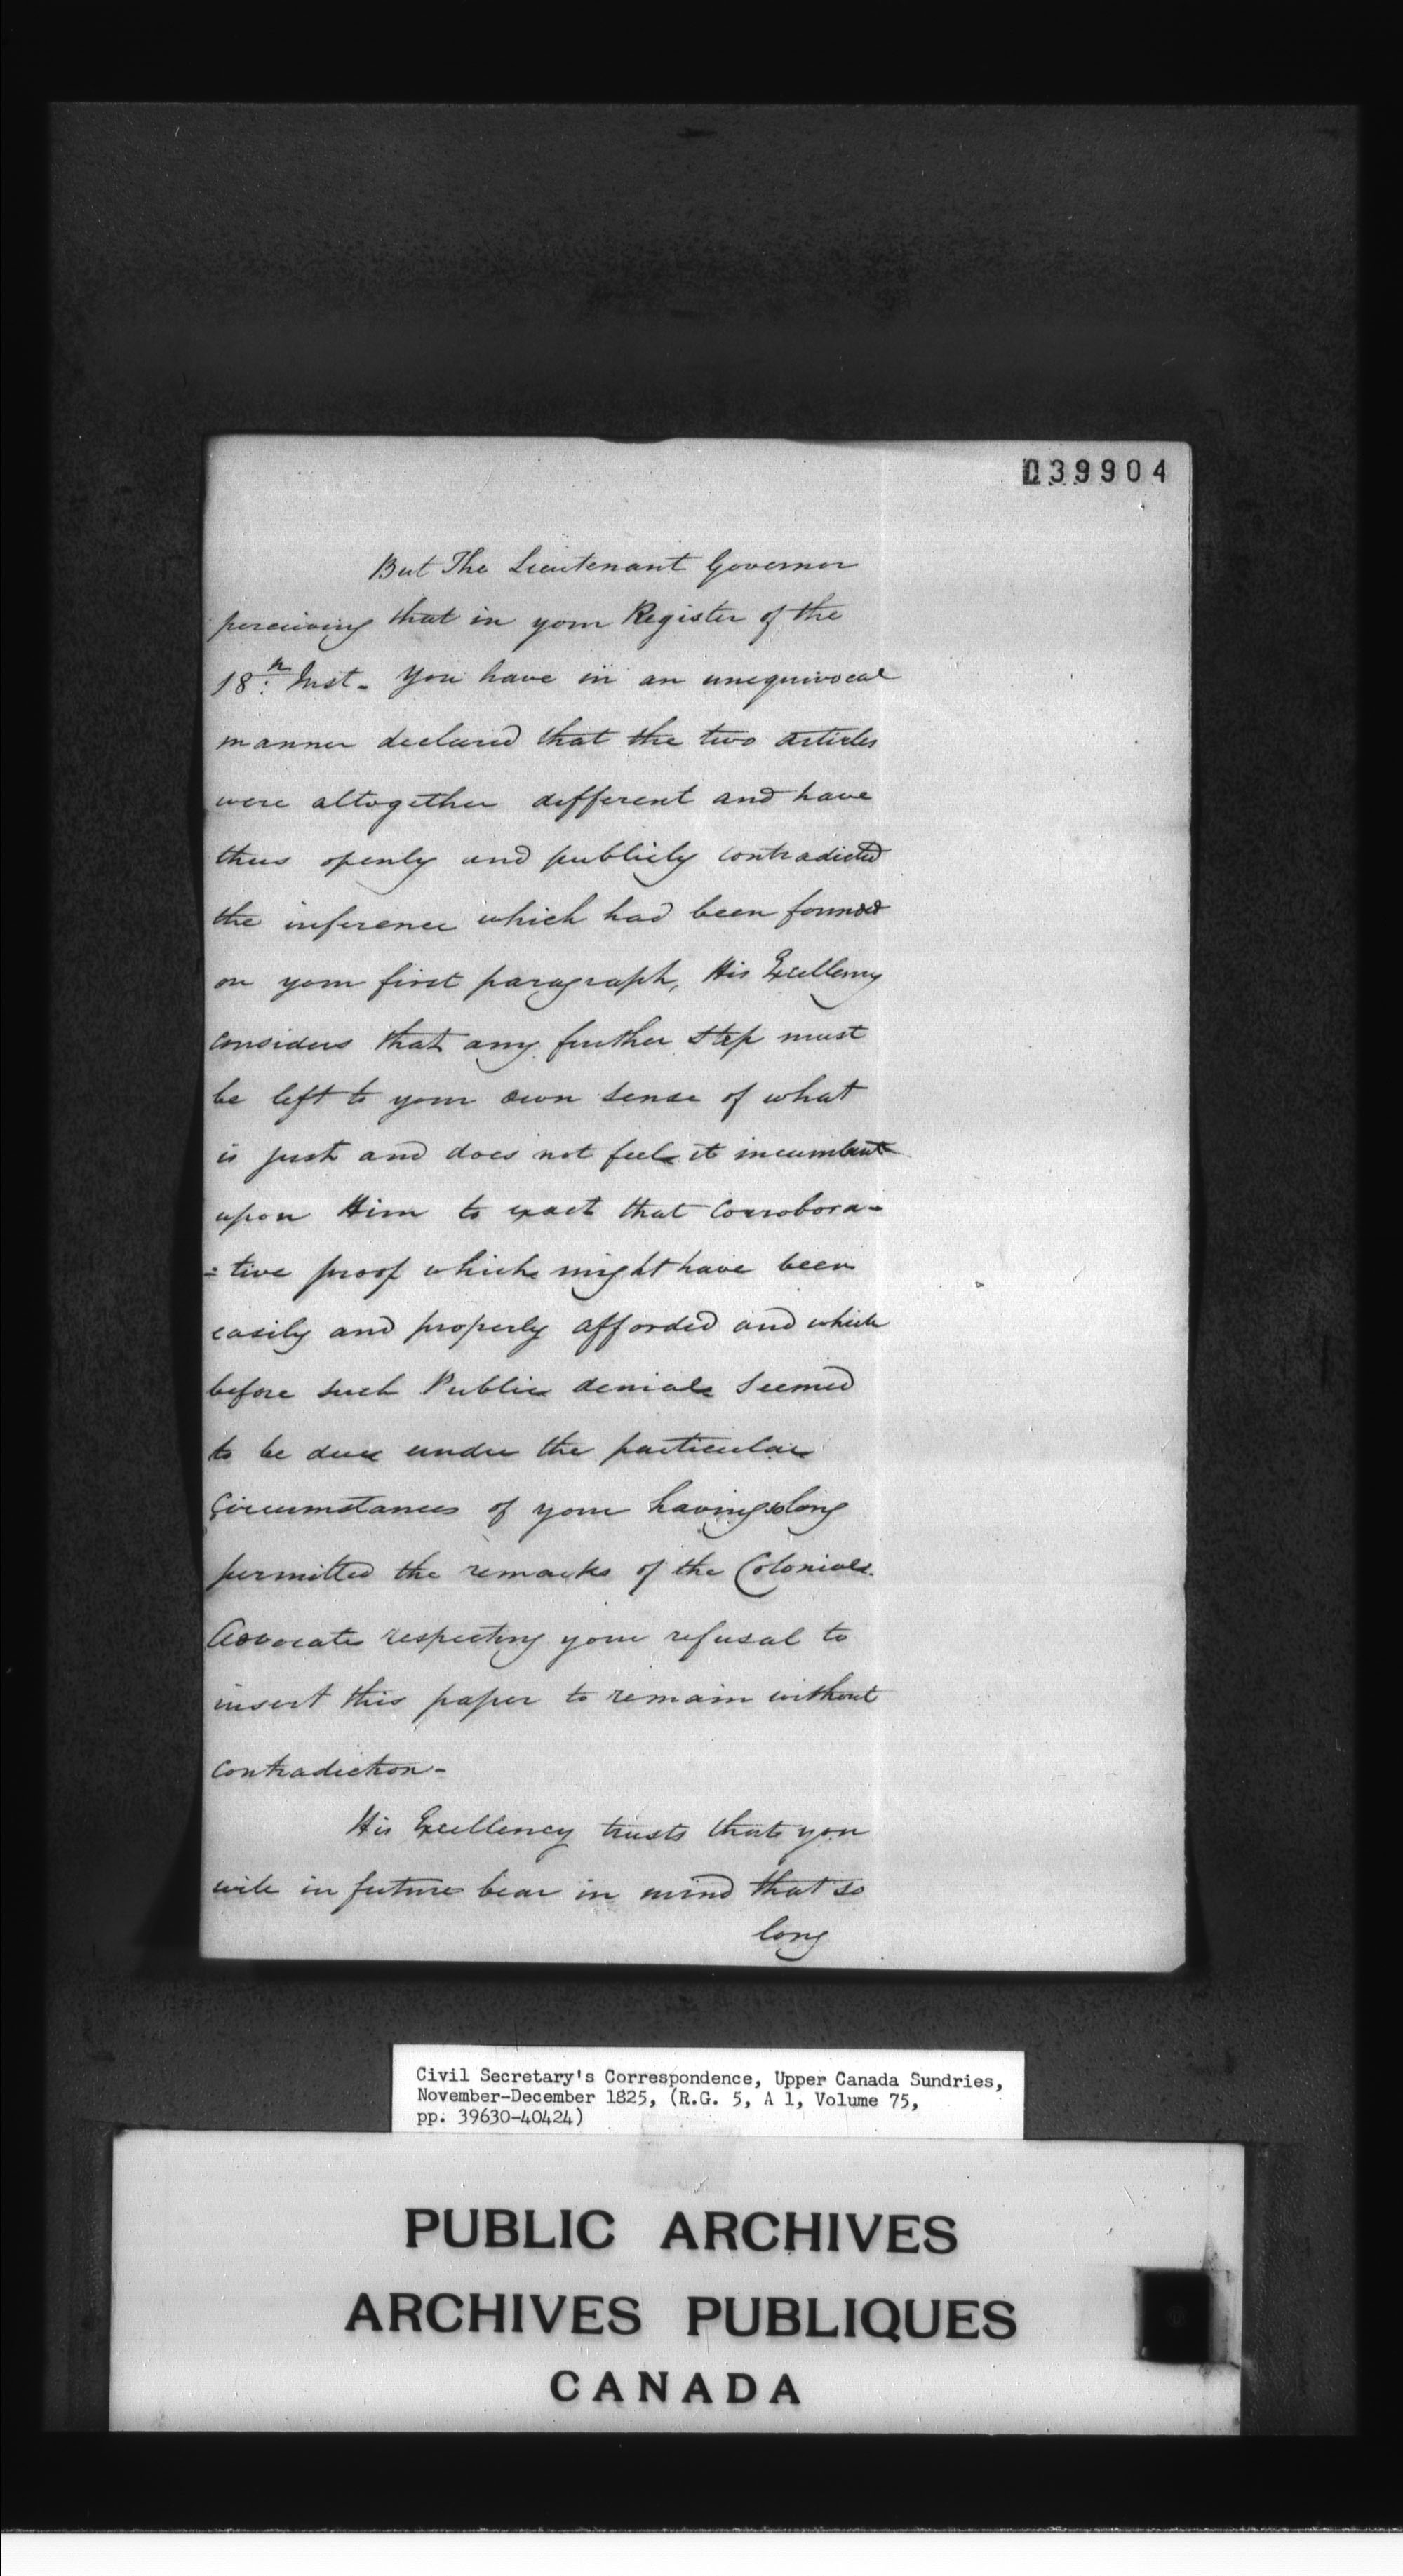 039904
But The Lieutenant Governor
perceiving that in your Register of the
18th Inst - You have in an unequivocal
manner declared that the two articles
were altogether different and have
thus openly and publicly contradicted
the inference which had been formed
on your first paragraph, His Excellency
considers that any further step must
be left to your own sense of what
is just and does not feel it incumbent
upon Him to exact that Corrobora-
=tive proof which might have been
easily and properly afforded and which
before such Public denial seemed
to be due under the particular
Circumstances of your having so long
permitted the remarks of the Colonial
Advocate respecting your refusal to
insert this paper to remain without
contradiction -
His Excellency trusts that you
will in future bear in mind that so
long
Civil Secretary's Correspondence, Upper Canada Sundries,
November-December 1825, (R.G. 5, A 1, Volume 75,
pp. 39630-40424)
PUBLIC ARCHIVES
ARCHIVES PUBLIQUES
CANADA